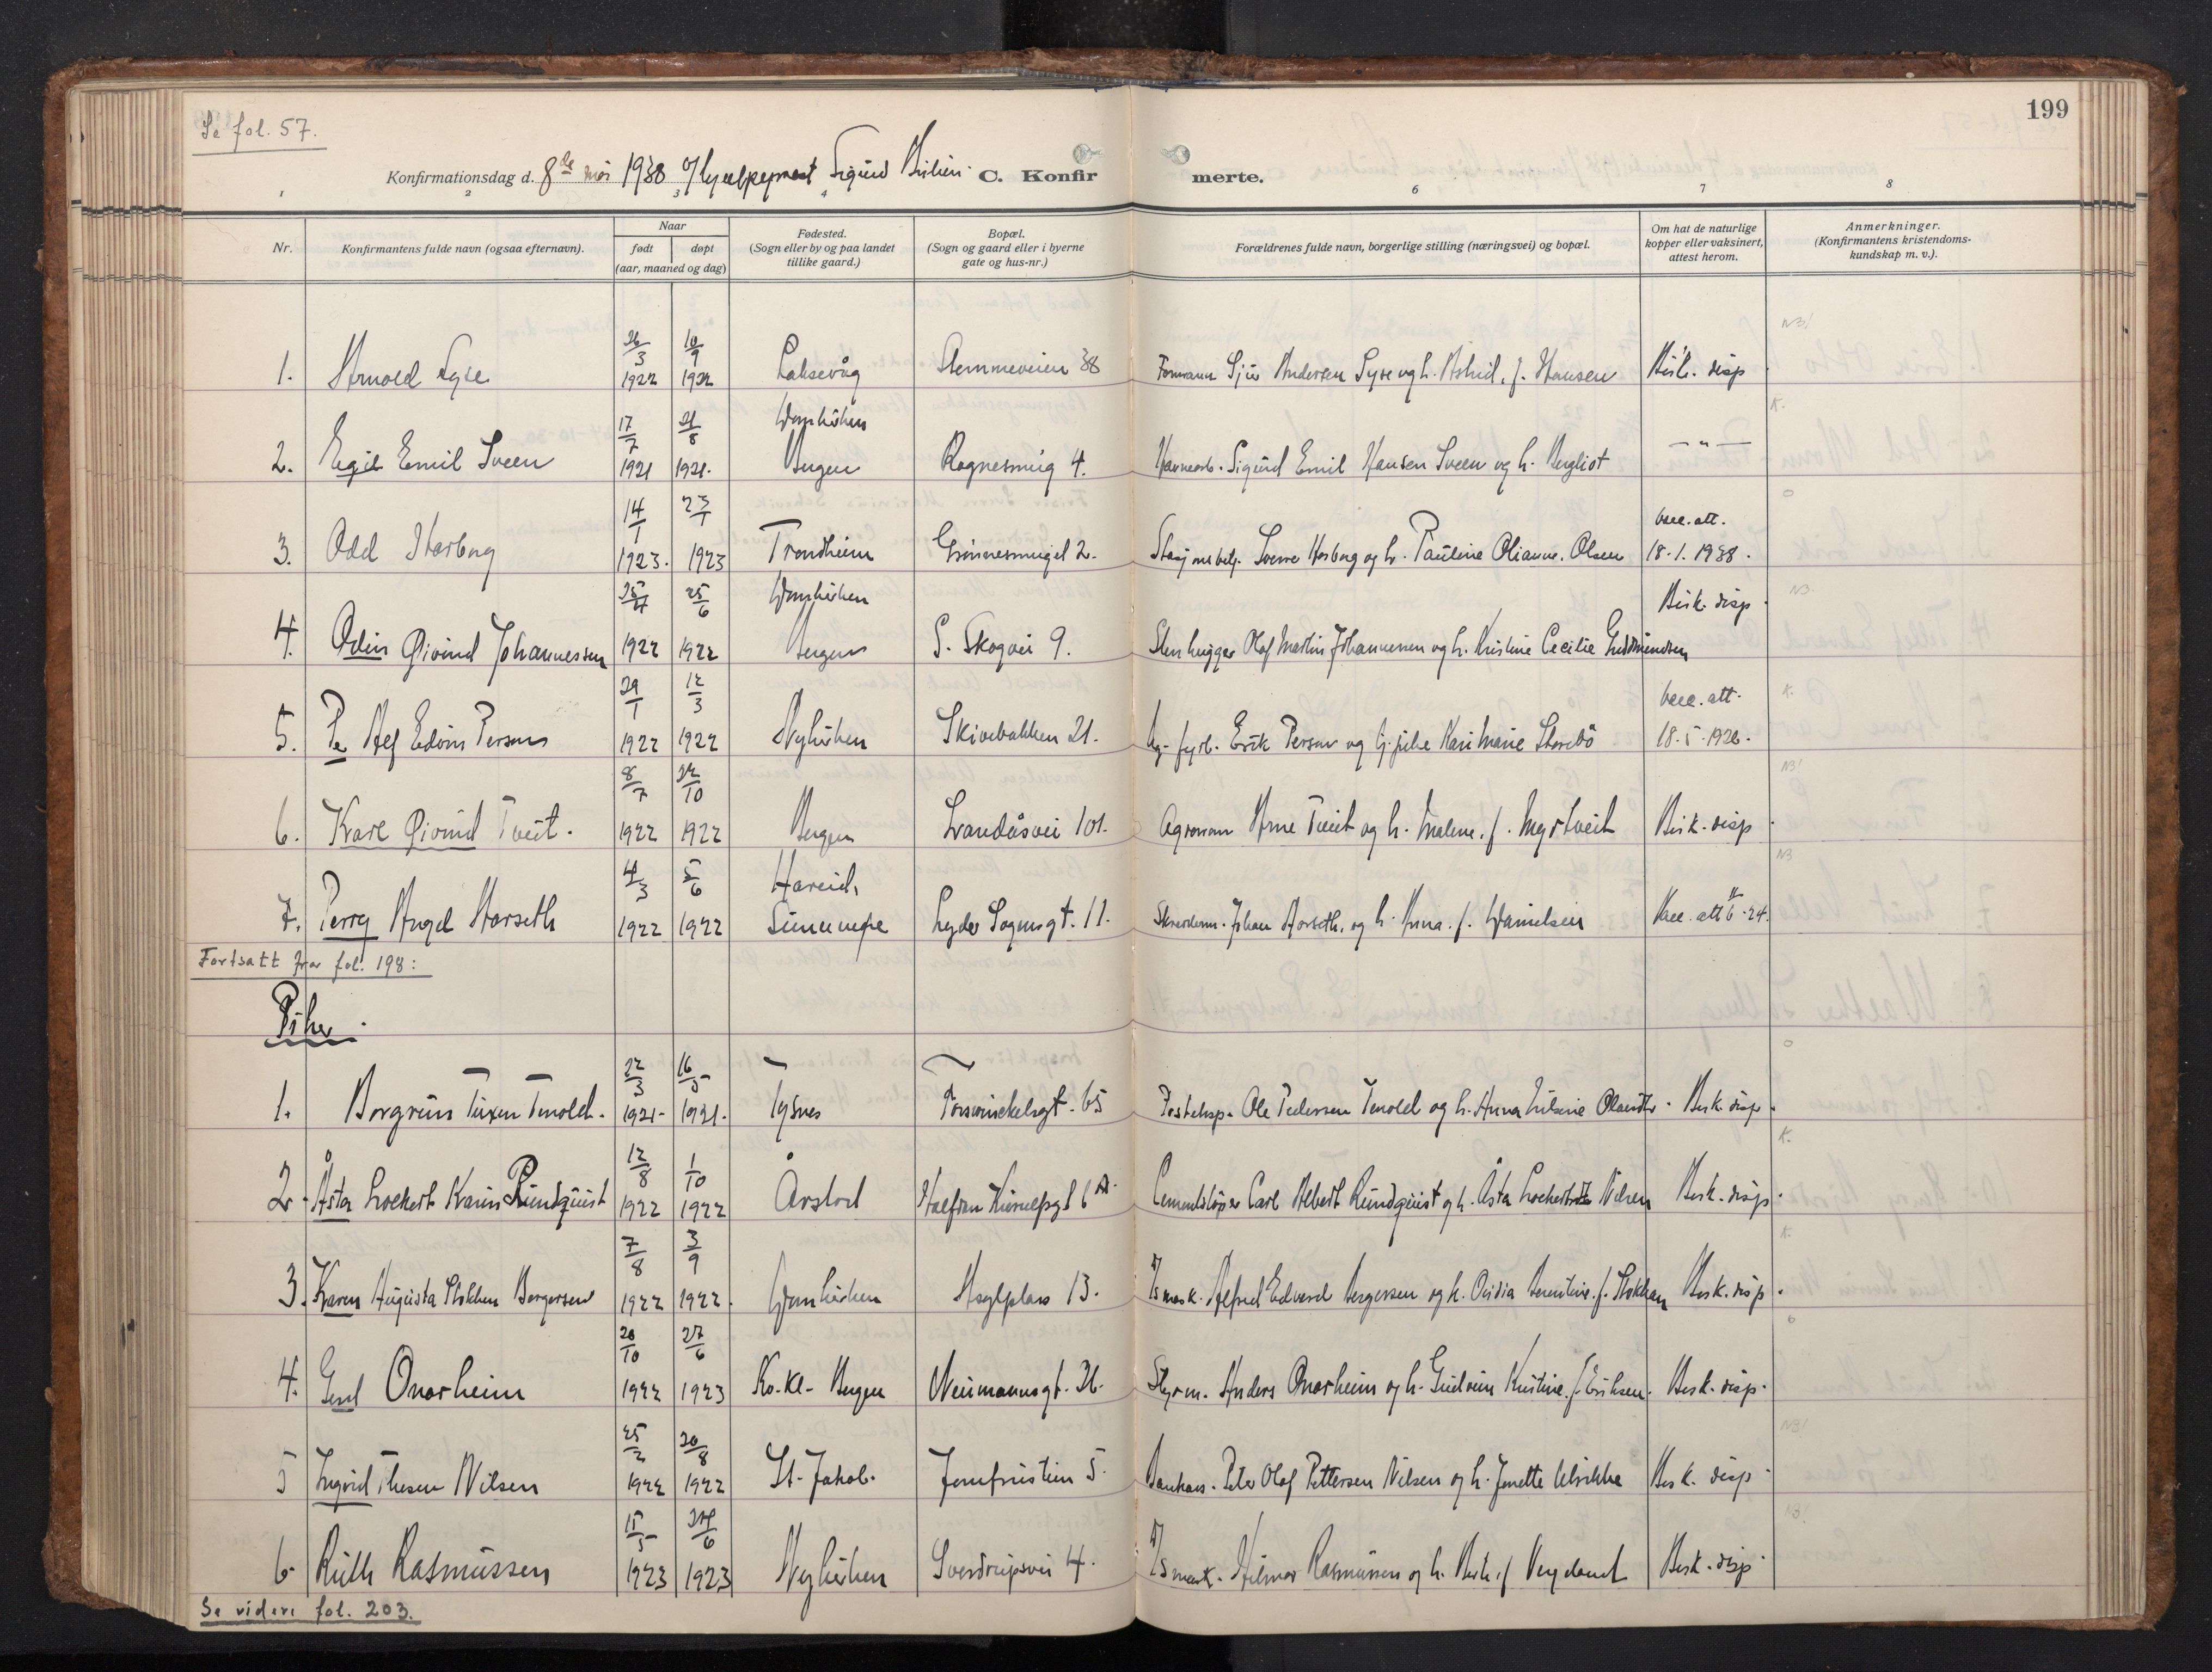 Se fol. 57.
199
Konfirmationsdag d. 8de mai 1938 Sigurd
C. Konfirmerte.
1 2 3 4 6 7 8
Nr.
Konfirmantens fulde navn (ogsaa efternavn).
Naar
født
døpt
(aar, maaned og dag)
Fødested.
(Sogn eller by og paa landet
tillike gaard.)
Bopæl.
(Sogn og gaard eller i byerne
gate og hus-nr.)
Forældrenes fulde navn, borgerlige stilling (næringsvei) og bopæl.
Om hat de naturlige
kopper eller vaksinert,
attest herom.
Anmerkninger.
(Konfirmantens kristendoms-
kundskap m. v.).
NB!
1. Arnold Syse 26/3 1922 10/9 1922 Laksevåg 38 Formann Sjur Andersen Syse og h. Astrid. f. Hansen Besk. disp
K.
2. Egil Emil Sveen 17/7 1921 21/8 1921. Domkirken Bergen Rognesmug 4. Havnearb. Sigurd Emil Hansen Sveen og h. Bergliot — " —
o
3. Odd Harborg 14/1 1923. 1923 Trondheim 2. Stasjonsbetj. Sverre Harborg og h. Pauline Olianne. Olsen vacc. att. 18.1.1938.
NB.
4. Odin Øivind Johannessen 25/4 1922 25/6 1922 Domkirken Bergen S. Skogvei 9. Stenhugger Olaf Martin Johannessen og h. Kristine Cecilie Gudmundsen Besk. disp.
K.
5. Per Alf Edvin Person 29/1 1922 12/3 1922 Nykirken Skivebakken 21. Erik Person og Kari Marie Storebö vacc. att. 18.5.1926.
NB!
6. Kåre Øivind Tveit. 8/7 1922 22/10 1922 Bergen Landåsvei 101. Agronom Arne Tveit og h. Malene. f. Myrtveit Besk. disp.
NB
7. Perry Angel Harseth 4/3 1922 5/6 1922 Hareid, Sunnmøre Lyder Sagensgt. 11. Johan Harseth, og h. Anna. f. Danielsen Vacc. att
Fortsatt fra fol. 198:
Piker.
o
1. Borgrun Tuxen Tenold. 22/3 1921. 16/5 1921. Tysnes 65 Posteksp. Ole Pedersen Tenold og h. Anna Besk. disp.
K.
2. Åsta Lockert Karin Rundquist 12/8 1922 1/10 1922 Årstad Halfdan Kjerulfsgt 6 A. Cementstöper Carl Albert Rundquist og h. Åsta Lockert Nilsen Besk. disp.
K.
3. Karen Augusta Stokken Bergersen 7/8 1922 3/9 1922. Domkirken Aaslplass 13. Alfred Edvard Bergersen og h. Ovidia Berentine. f. Stokken Besk. disp.
o
4. Gerd Onarheim 20/10 1922 27/6 1923 Ko. kl. Bergen Neumannsgt. 26. Styrm. Anders Onarheim og h. Gudrun Kristine. f. Eriksen. Besk. disp.
NB!
5 Ingrid Thesen Nilsen 25/2 1922 20/8 1922 St. Jakob. Jomfrustien 5. Peter Olaf Pettersen Nilsen og h. Jenette Ulrikke Besk. disp.
NB.
6. Ruth Rasmussen 15/5 1923 24/6 1923 Nykirken Sverdrupsvei 4. Hilmar Rasmussen og h. Besk. disp.
Se videre fol. 203.